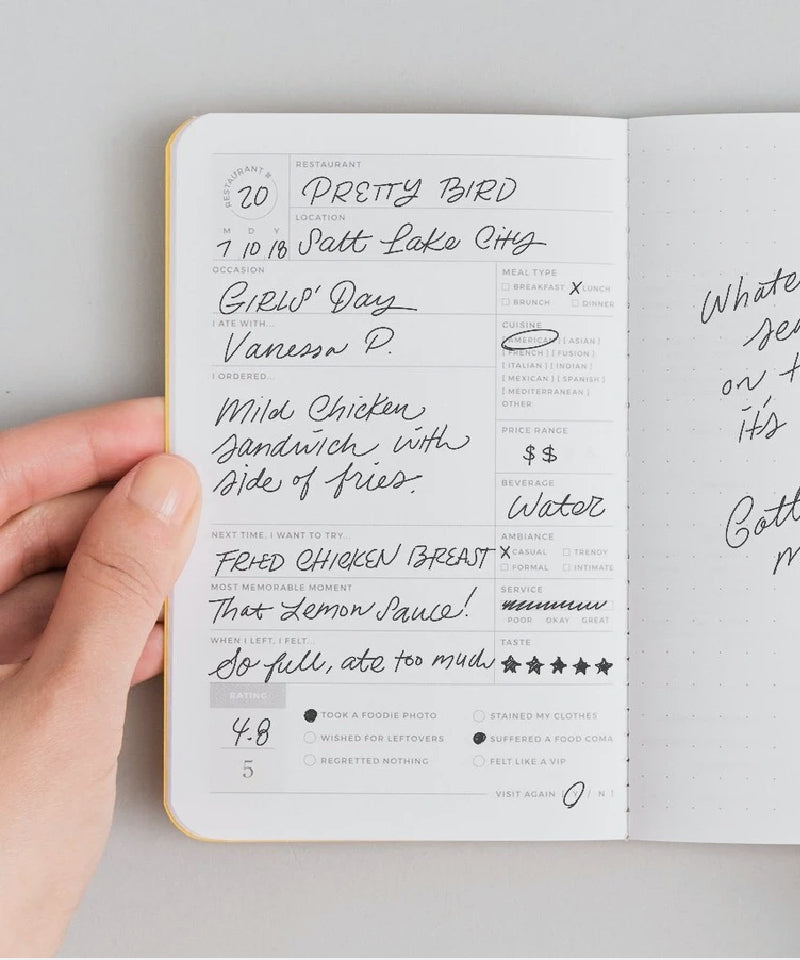 RESTAURANT #
20
RESTAURANT
PRETTY BIRD
M D Y
7 10 18
LOCATION
Salt Lake City
OCCASION
GIRLS' Day
I ATE WITH...
Vanessa P.
I ORDERED...
Mild Chicken
sandwich with
side of fries.
MEAL TYPE
BREAKFAST X LUNCH
BRUNCH DINNER
CUISINE
[AMERICAN] [ASIAN]
[FRENCH] [FUSION]
[ITALIAN] [INDIAN]
[MEXICAN] [SPANISH]
[MEDITERRANEAN]
OTHER
PRICE RANGE
$$
BEVERAGE
Water
NEXT TIME, I WANT TO TRY...
FRIED CHICKEN BREAST
AMBIANCE
X CASUAL TRENDY
FORMAL INTIMATE
MOST MEMORABLE MOMENT
That Lemon Sauce!
SERVICE
POOR OKAY GREAT
WHEN I LEFT, I FELT...
So full, ate too much
TASTE
RATING
4.8
5
TOOK A FOODIE PHOTO
STAINED MY CLOTHES
WISHED FOR LEFTOVERS
SUFFERED A FOOD COMA
REGRETTED NOTHING
FELT LIKE A VIP
VISIT AGAIN [ Y / N ]
on
it's